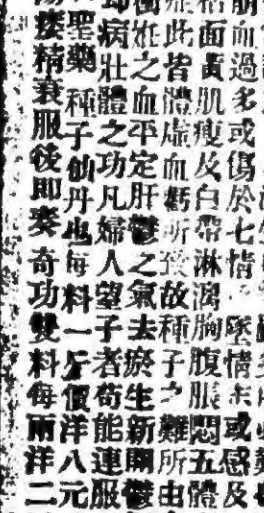 崩血過多或傷於七情墜情未或感及
枯面黃肌瘦及白帶淋漓胸腹脹悶五體
症此皆體虛血虧所致故種子之難所由
衝妊之血平定肝鬱之氣去瘀生新開鬱
却病壯體之功凡婦人望子者苟能連服
聖藥種子仙丹也每料一斤價洋八元
痿精衰服後即奏奇功雙料每兩洋二